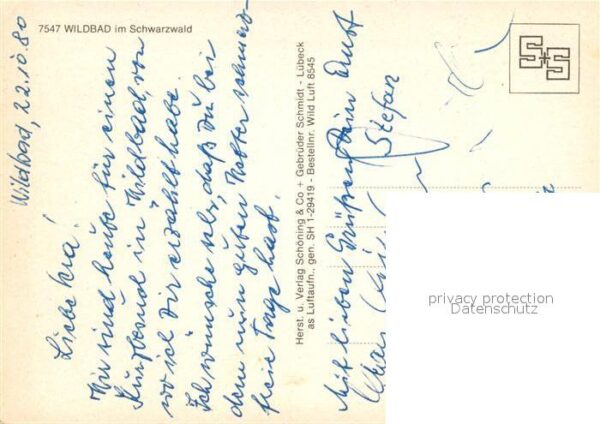 7547 WILDBAD im Schwarzwald
Wildbad, 22.10.80
Liebe
Wir sind heute für einen
Kurzbesuch in Wildbad, von
wo ich Dir erzählt habe.
Ich wünsche sehr, daß Du bei
dem nun guten Wetter schmerz-
freie Tage hast.
Mit lieben Grüßen Dein Ernst
Stefan
Herst. u. Verlag Schöning & Co + Gebrüder Schmidt - Lübeck
as Luftaufn., gen. SH 1-29419 - Bestellnr. Wild Luft 8545
privacy protection
Datenschutz